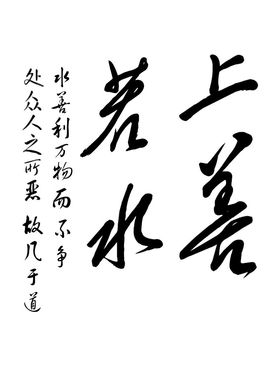 上善
若水
水善利万物而不争
处众人之所恶故几于道